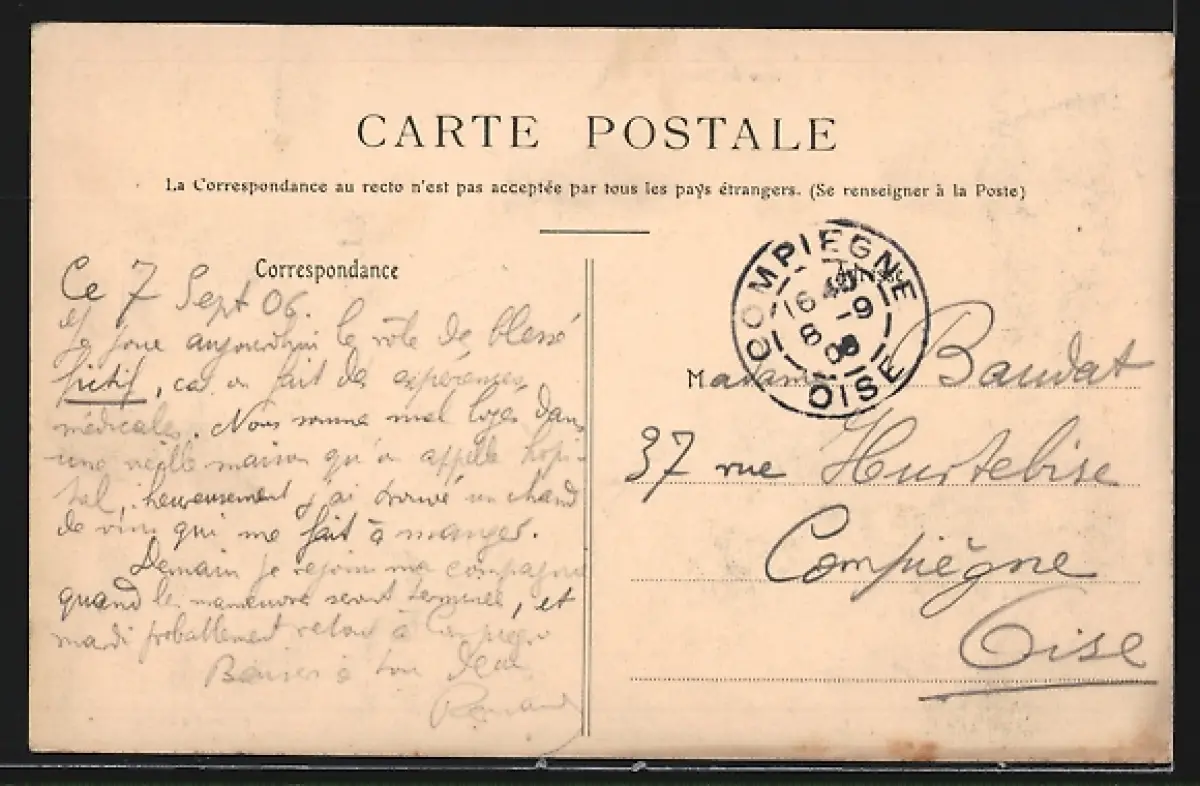 CARTE POSTALE
La Correspondance au recto n'est pas acceptée par tous les pays étrangers. (Se renseigner à la Poste)
Correspondance
Ce 7 Sept 06.
Je joue aujourdhui le rôle de blessé
fictif, car on fait des expériences
médicales. Nous somme mal logés dans
une vieille maison qu'on appelle hopi-
tal, heureusement j'ai trouvé un chand
de vins qui me fait à manger.
Demain je rejoins ma compagnie
quand les manœuvre seront terminée, et
mardi probablement retour à Compiegne
Baisers à tou
COMPIEGNE
16 40
8 -9
OISE
Madame Baudat
37 rue Hurtebise
Compiègne
Oise